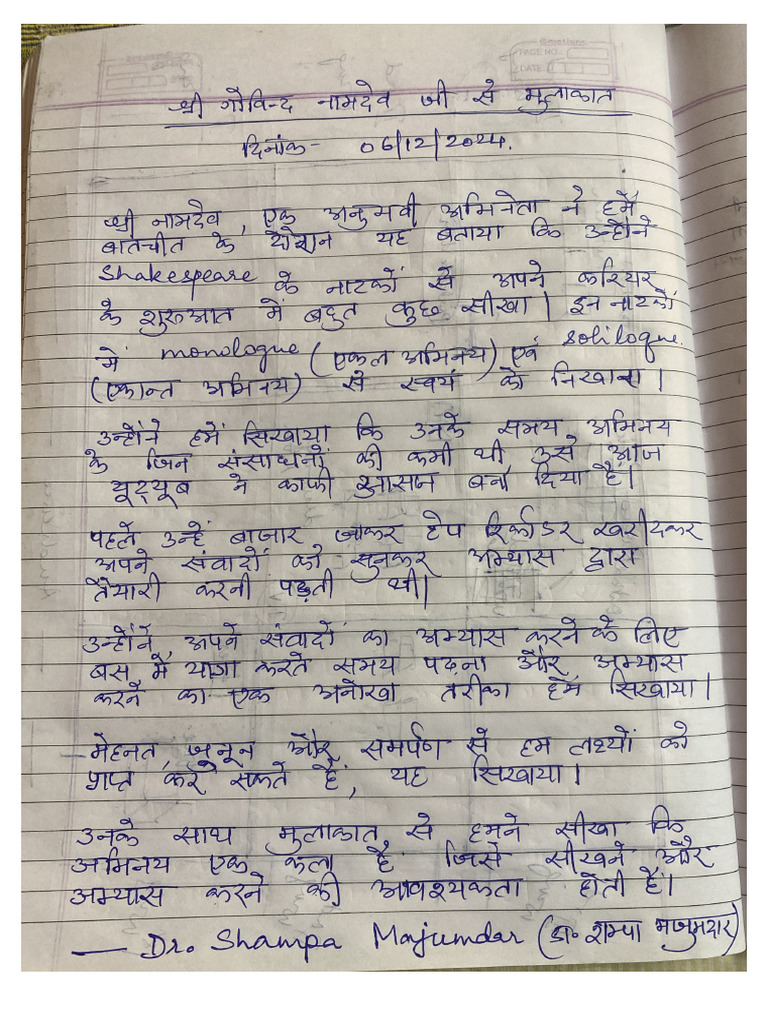 PAGE NO.
DATE
श्री गोविन्द नामदेव जी से मुलाकात
दिनांक- 06/12/2024.
श्री नामदेव, एक अनुभवी अभिनेता ने हमें
बातचीत के दौरान यह बताया कि उन्होंने
Shakespeare के नाटकों से अपने करियर
के शुरुआत में बहुत कुछ सीखा। इन नाटकों
में monologue (एकल अभिनय) एवं soliloque.
(एकान्त अभिनय) से स्वयं को निखारा।
उन्होंने हमें सिखाया कि उनके समय अभिनय
के जिन संसाधनों की कमी थी उसे आज
यूट्यूब ने काफी आसान बना दिया है।
पहले उन्हें बाजार जाकर टेप रिकॉर्डर खरीदकर
अपने संवादों को सुनकर अभ्यास द्वारा
तैयारी करनी पड़ती थी।
उन्होंने अपने संवादों का अभ्यास करने के लिए
बस में यात्रा करते समय पढ़ना और अभ्यास
करने का एक अनोखा तरीका हमें सिखाया।
मेहनत, जुनून और समर्पण से हम लक्ष्यों को
प्राप्त कर सकते हैं, यह सिखाया।
उनके साथ मुलाकात से हमने सीखा कि
अभिनय एक कला है जिसे सीखने और
अभ्यास करने की आवश्यकता होती है।
— Dr. Shampa Majumdar (डा॰ शम्पा मजुमदार)